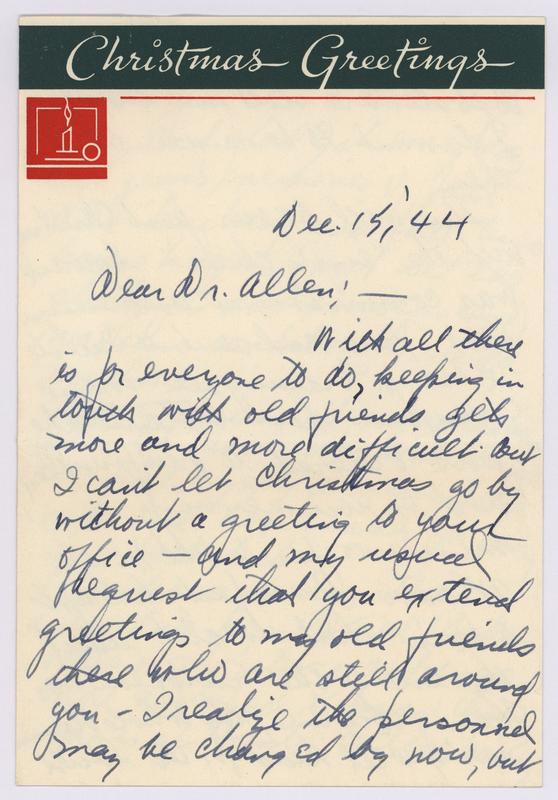 Christmas Greetings
Dec. 15, '44
Dear Dr. Allen; —
With all there
is for everyone to do, keeping in
touch with old friends gets
more and more difficult. But
I can't let Christmas go by
without a greeting to your
office — and my usual
request that you extend
greetings to my old friends
there who are still around
you - I realize the personnel
may be changed by now, but